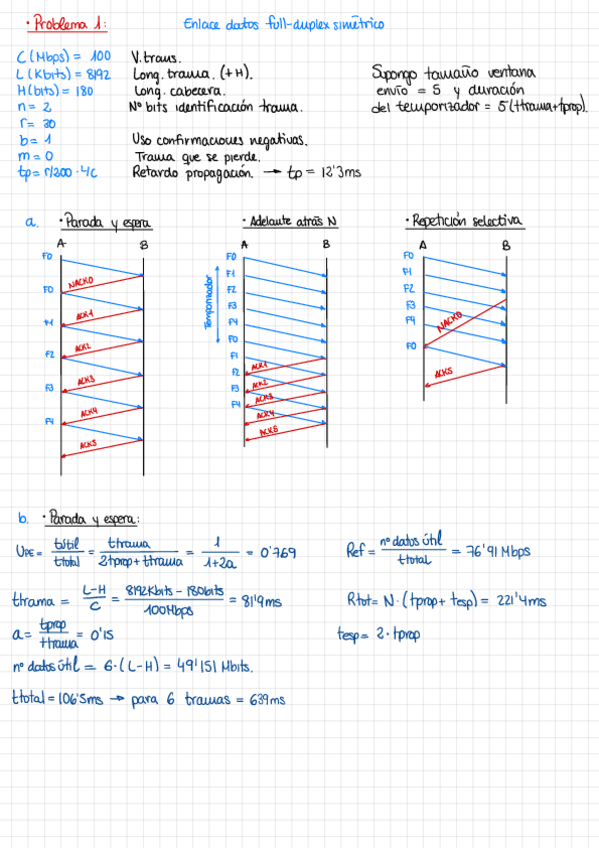 · Problema 1: Enlace datos full-duplex simétrico
C (Mbps) = 100 V. trans.
L (Kbits) = 8192 Long. trama. (+H).
H (bits) = 180 Long. cabecera.
n = 2 Nº bits identificación trama.
r = 30
b = 1 Uso confirmaciones negativas.
m = 0 Trama que se pierde.
tp = r/200 · L/C Retardo propagación. → tp = 12'3ms
Supongo tamaño ventana
envío = 5 y duración
del temporizador = 5(ttrama+tprop).
a. · Parada y espera · Adelante atrás N · Repetición selectiva
A B
F0
NACK0
F0
ACK1
F1
ACK2
F2
ACK3
F3
ACK4
F4
ACK5
A B
Temporizador
F0
F1
F2
F3
F4
F0
F1
ACK1
F2
ACK2
F3
ACK3
F4
ACK4
ACK5
A B
F0
F1
F2
F3
F4
NACK0
F0
ACK5
b. · Parada y espera:
UPE = tútil/ttotal = ttrama/2tprop + ttrama = 1/1+2a = 0'769
Ref = nº datos útil/ttotal = 76'91 Mbps
ttrama = L-H/C = 8192Kbits - 180bits/100Mbps = 81'9ms
Rtot = N · (tprop + tesp) = 221'4ms
a = tprop/ttrama = 0'15
tesp = 2 · tprop
nº datos útil = 6 · (L-H) = 49'151 Mbits.
ttotal = 106'5ms → para 6 tramas = 639ms